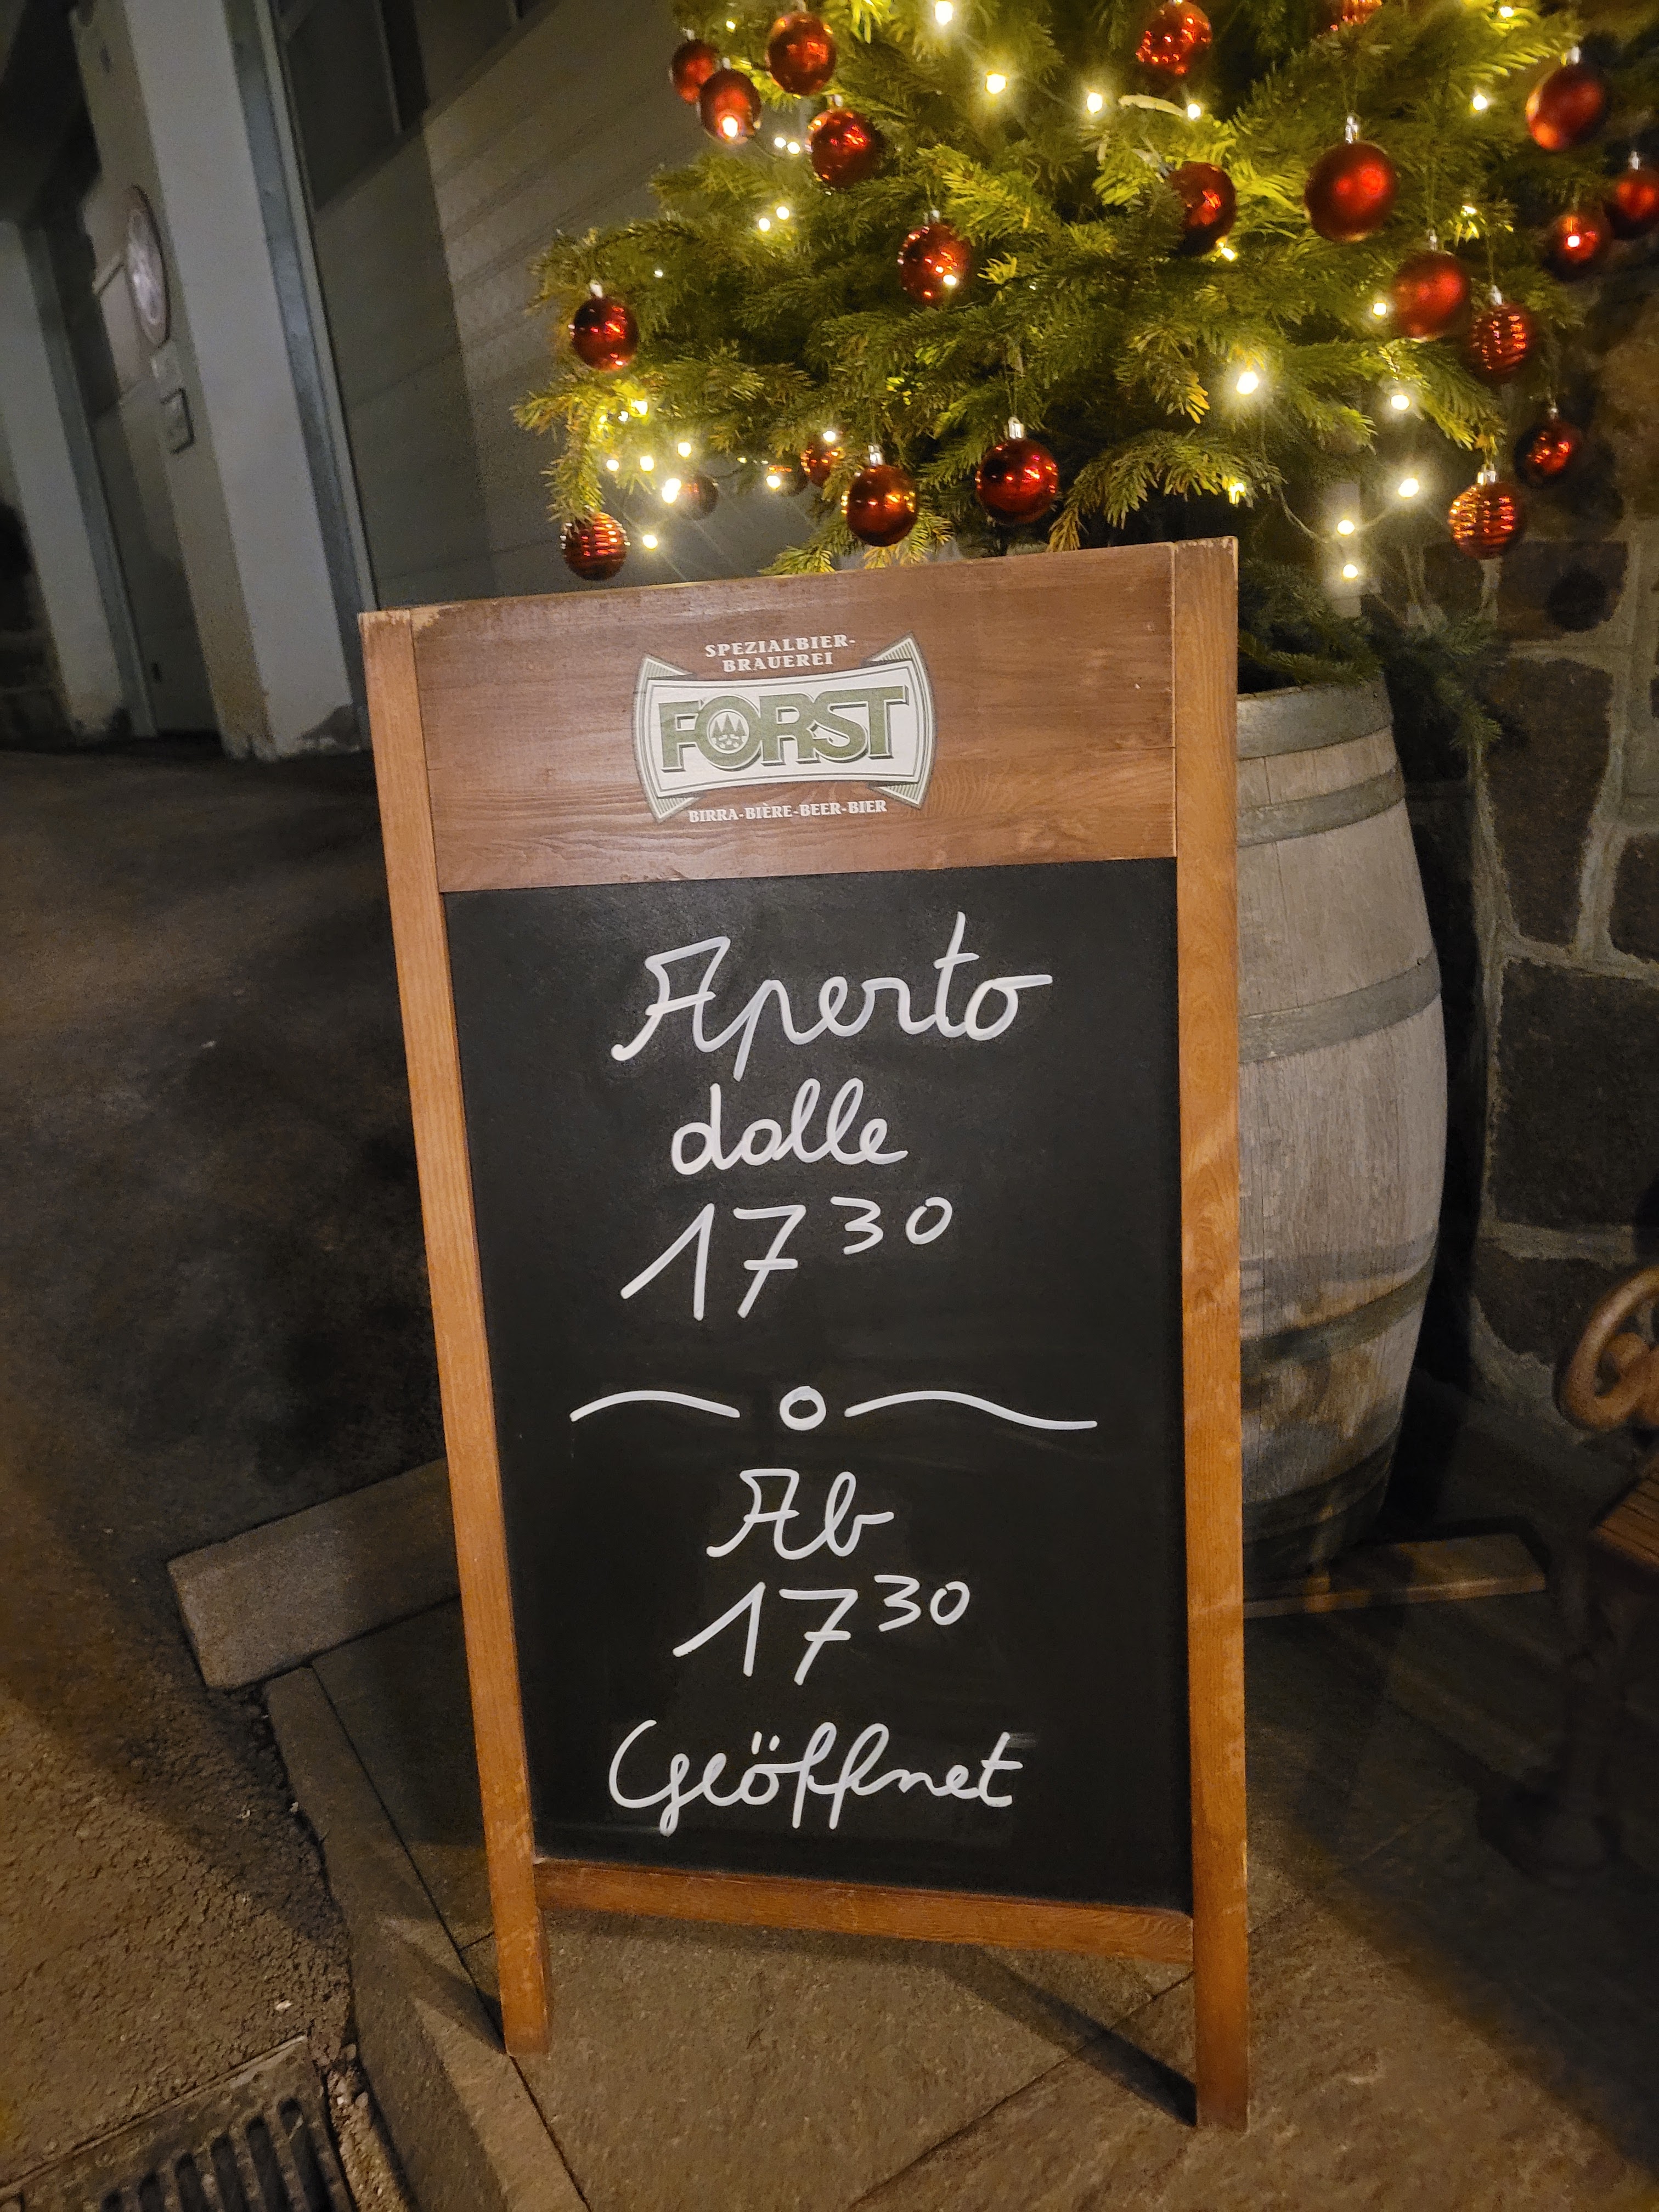 SPEZIALBIER-
BRAUEREI
FORST
BIRRA-BIÈRE-BEER-BIER
Aperto
dalle
17³⁰
Ab
17³⁰
Geöffnet